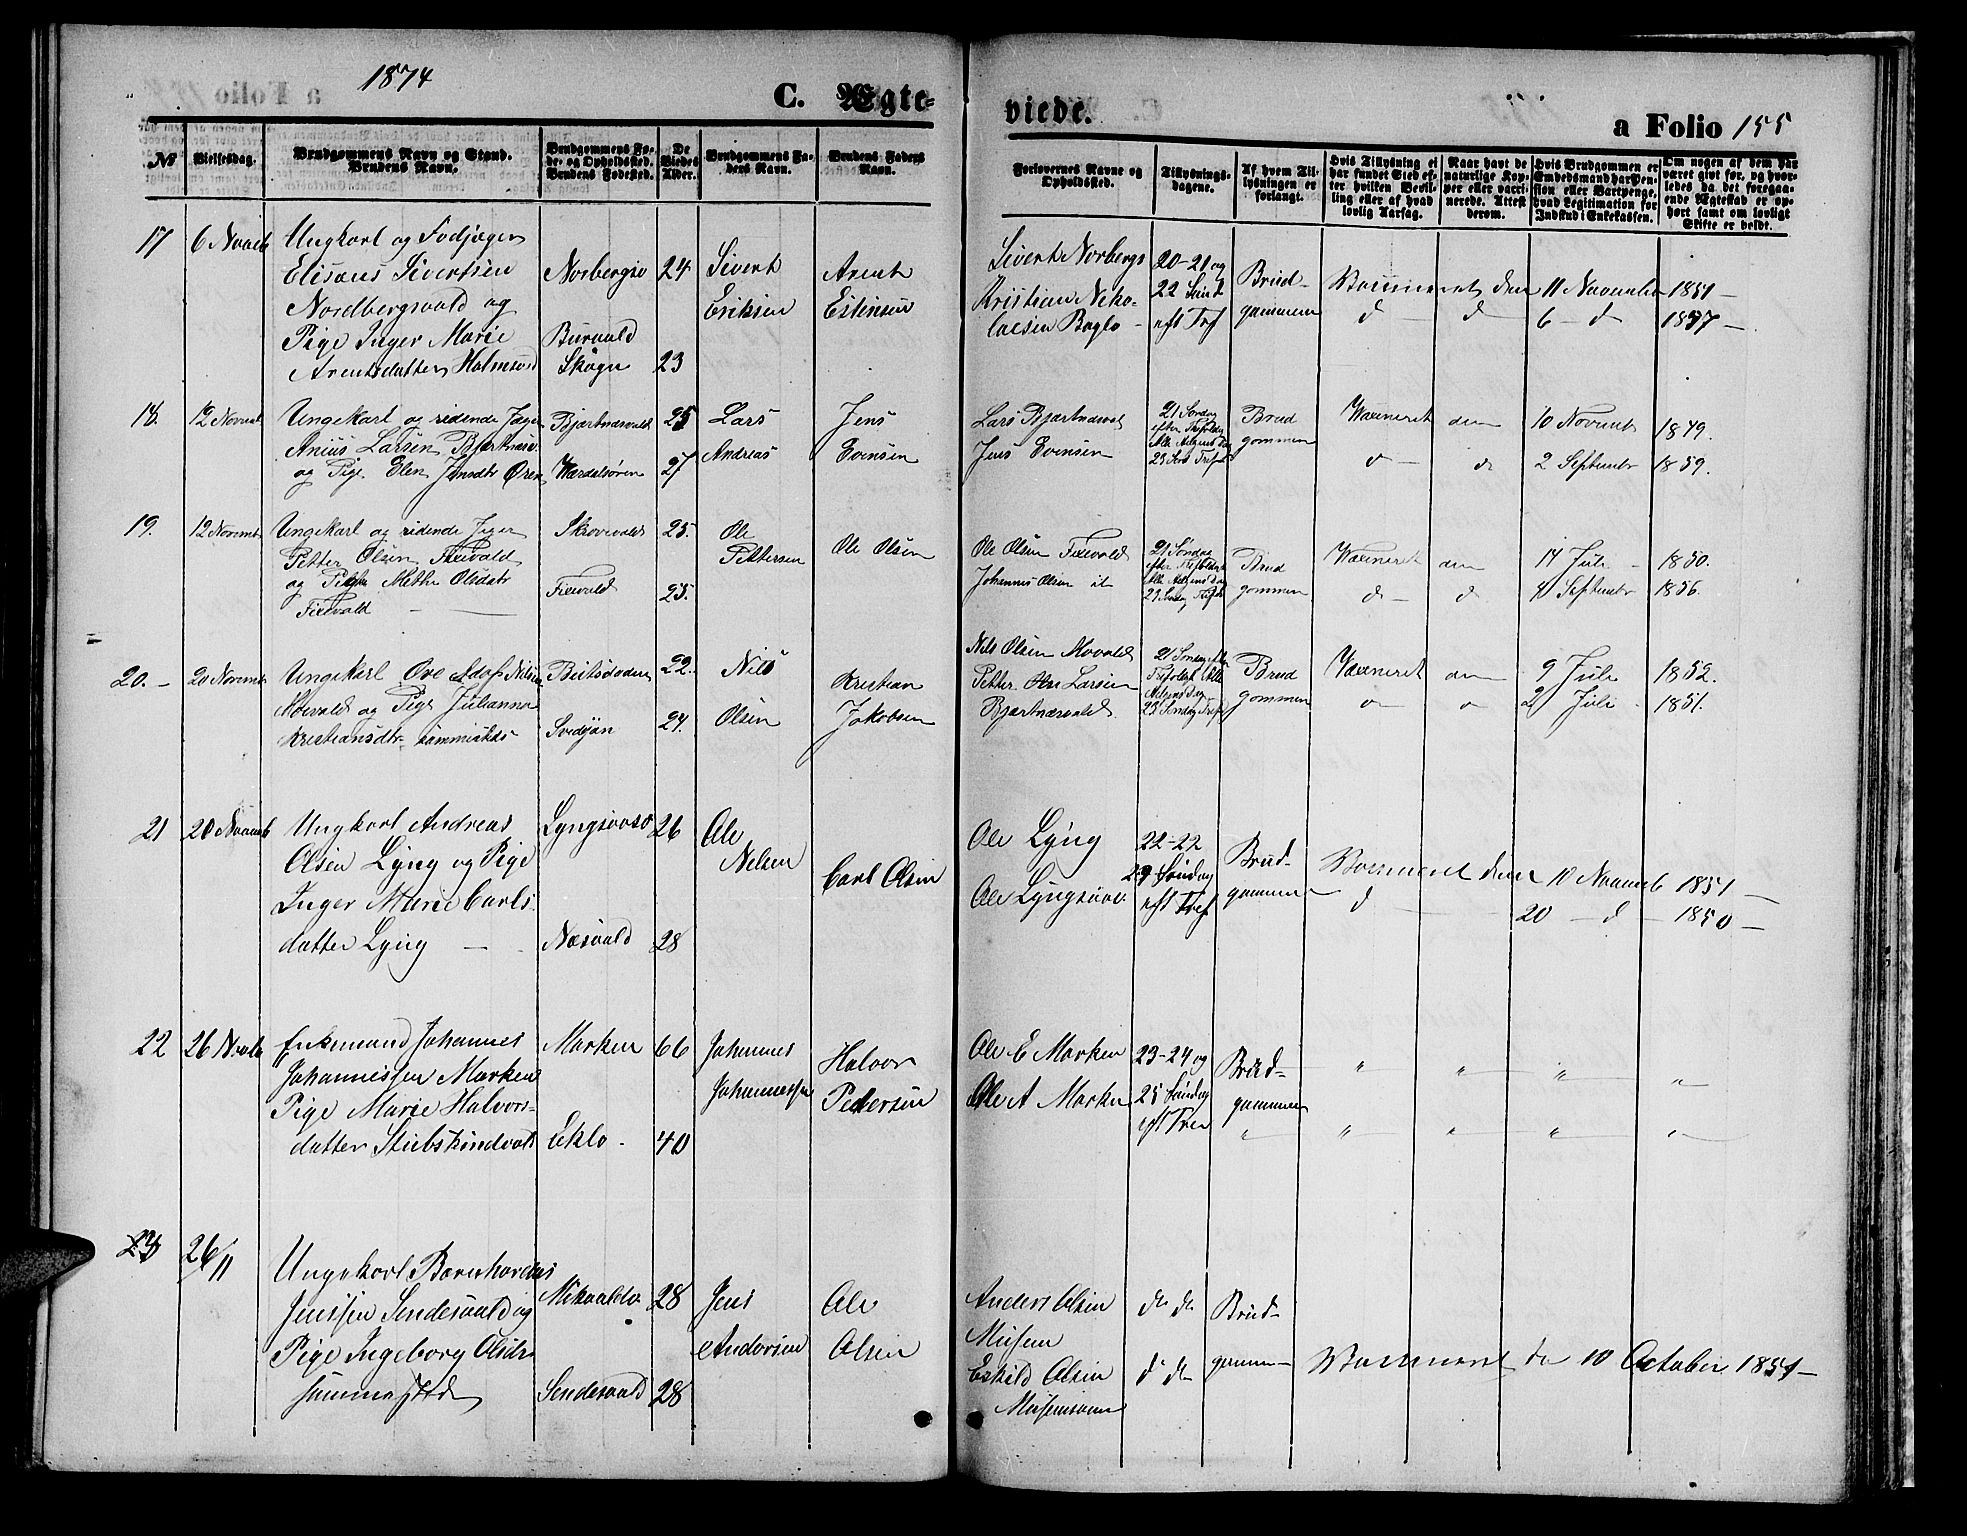 1874
C. Ægte-
viede.
a Folio 155
№
Vielsesdag.
Brudgommens Navn og Stand.
Brudens Navn.
Brudgommens Fø-
de- og Opholdsted.
Brudens Fødested.
De
Viedes
Alder.
Brudgommens Fa-
ders Navn.
Brudens Faders
Navn.
Forlovernes Navne og
Opholdsted.
Tillysnings-
dagene.
Af hvem Til-
lysningen er
forlangt.
Hvis Tillysning ei
har fundet Sted ef-
ter hvilken Bevil-
ling eller af hvad
lovlig Aarsag.
Naar havt de
naturlige Kop-
per eller vacci-
nerede. Attest
derom.
Hvis Brudgommen er
Embedsmand har Pen-
sion eller Vartpenge,
hvad Legitimation for
Indskud i Enkekassen.
Om nogen af dem har
været gift før, og hvor-
ledes da det foregaa-
ende Ægteskab er op-
hørt samt om lovligt
Skifte er holdt.
17 6 Novemb
Ungkarl og Fodjæger
Elisæus Sivertsen
Nordbergsvald og
Pige Inger Marie
Arentsdatter
24
Skogn 23
Sivert
Eriksen
Arent
Estensen
Sivert Norbergs
Kristian Niko-
laesen Baglo
20-21 og
22 Sønd
eft Tref
Brud-
gommen
den 11 November 1851 -
d - d 6 - d 1857 -
18. 12 Novemb
Ungekarl og ridende Jæger
Anius Larsen Bjartnæsv.
og Pige Elen Jensdtr Øren
Bjartnæsvald 25
Værdalsøren 27
Lars
Andreas
Jens
Evensen
Lars Bjartnæsvald
Jens Evensen
21 Søndag
efter Trefoldig
Alle Helgens Dag
23 Sønd Tref
Brud
gommen
Vaxineret den 10 November 1849.
d - d 2 September 1859.
19. 12 November
Ungekarl og ridende Jæger
Petter Olsen
og Pige Mette Olsdatr
25.
25.
Ole
Pettersen
Ole Olsen
Ole Olsen
Johannes Olsen
21 Søndag
efter Trefoldigh
Alle Helgens Dag
23 Søndag Trefol
Brud
gommen
Vaxineret den 17 Juli - 1850.
d - d September 1856.
20. - 20 November
Ungekarl Ove Adolf Nilsen
Movald og Pige Julianna
Kristiansdtr sammesteds
Beitstaden 22.
24.
Nils
Olsen
Kristian
Jakobsen
Nils Olsen Movald
Petter Larsen
Bjartnæsvald
21 Søndag
Trefoldigh Alle
Helgens Dag
23 Søndag Tref
Brud
gommen
Vaxineret den 9 Juli 1852.
2 Juli - 1851.
21 20 Novemb
Ungkarl Andreas
Olsen Lyng og Pige
Inger Marie Carls-
datter Lyng -
26
Næsvald 28
Ole
Nelsen
Carl Olsen
Ole Lyng
Ole
22-22
23 Søndag
eft Tref
Brud-
gommen
den 10 Novemb 1851 -
d 20 - d - 1850 -
22 26 Novb
Enkemand Johannes
Johannessen Marken
Pige Marie Halvors-
datter
Marken 66
Eklo - 40
Johannes
Johannessen
Halvor
Pedersen
Ole E Marken
Ole A Marken
23-24 og
25 Søndag
eft Tref
Brud-
gommen
" " " "
" " " " "
23 26/11
Ungekarl
Jenssen Sendesvald og
Pige Ingeborg Olsdtr
sammested
28
Sendesvald 28
Jens
Andersen
Ole
Olsen
Anders Olsen
Eskild Olsen
do do
do do
Brud-
gommen
10 October 1851 -